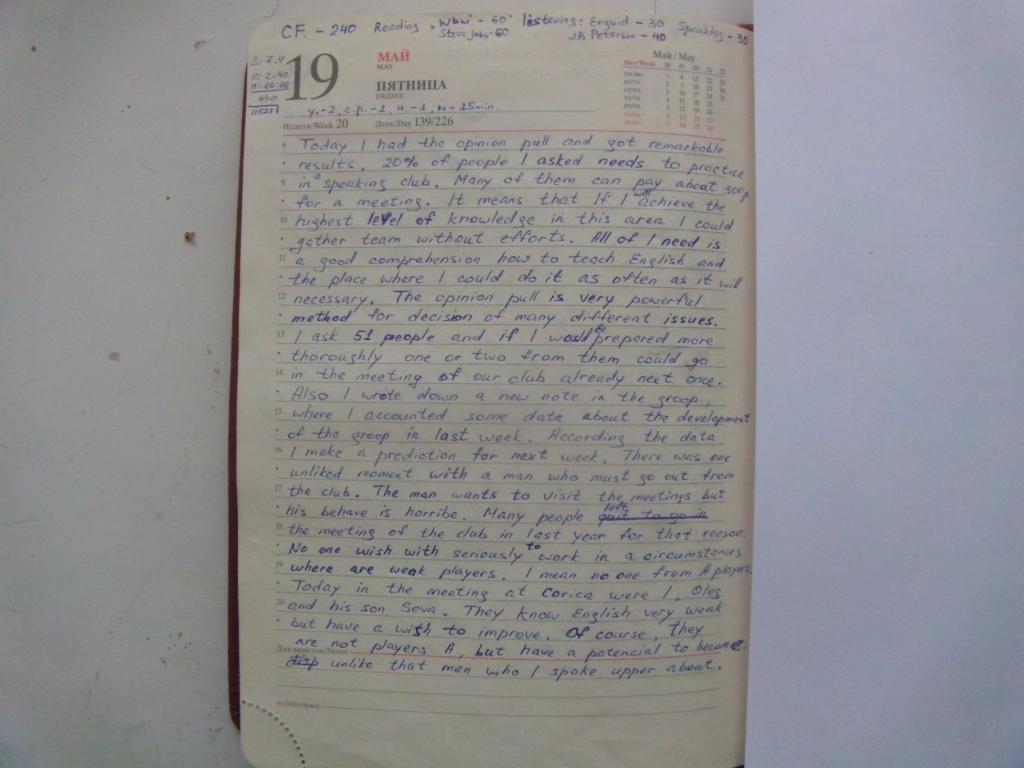 CF. - 240 Reading . "Wbw" - 60' listening: Enguid - 30 Speaking - 30
Steve Jobs - 60 JB Peterson - 40
19
МАЙ
MAY
ПЯТНИЦА
FRIDAY
Май / May
Нед/Week 18 19 20 21 22
у.-2, с.р.-1, и.-1, м-15min.
Неделя/Week 20 День/Day 139/226
8 Today I had the opinion pull and got remarkable
results. 20% of people I asked needs to practice
9 in a speaking club. Many of them can pay about 300р
for a meeting. It means that If I will achieve the
10 highest level of knowledge in this area I could
gather team without efforts. All of I need is
11 a good comprehension how to teach English and
the place where I could do it as often as it will
12 necessary. The opinion pull is very powerful
method for decision of many different issues.
13 I ask 51 people and if I would be prepared more
thoroughly one or two from them could go
14 in the meeting of our club already next once.
Also I wrote down a new note in the groop,
15 where I accounted some data about the development
of the groop in last week. According the data
16 I make a prediction for next week. There was one
unliked moment with a man who must go out from
17 the club. The man wants to visit the meetings but
his behave is horribe. Many people left quit to go in
18 the meeting of the club in last year for that reason.
No one wish with seriously to work in a circumstances
19 where are weak players. I mean no one from A players.
Today in the meeting at Corica were I, Oleg
20 and his son Seva. They know English very weak
but have a wish to improve. Of course, they
are not players A, but have a potencial to become,
Для заметок/Notes
unlike that man who I spoke upper about.
© OfficeSpace